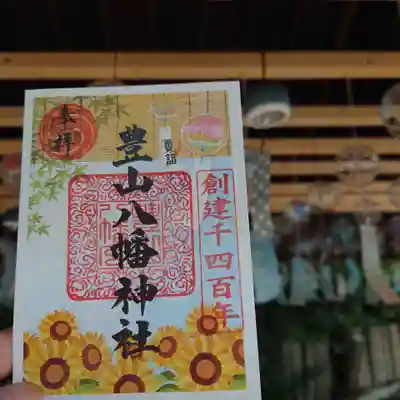 奉拝
豊山八幡神社
創建千四百年
夏詣